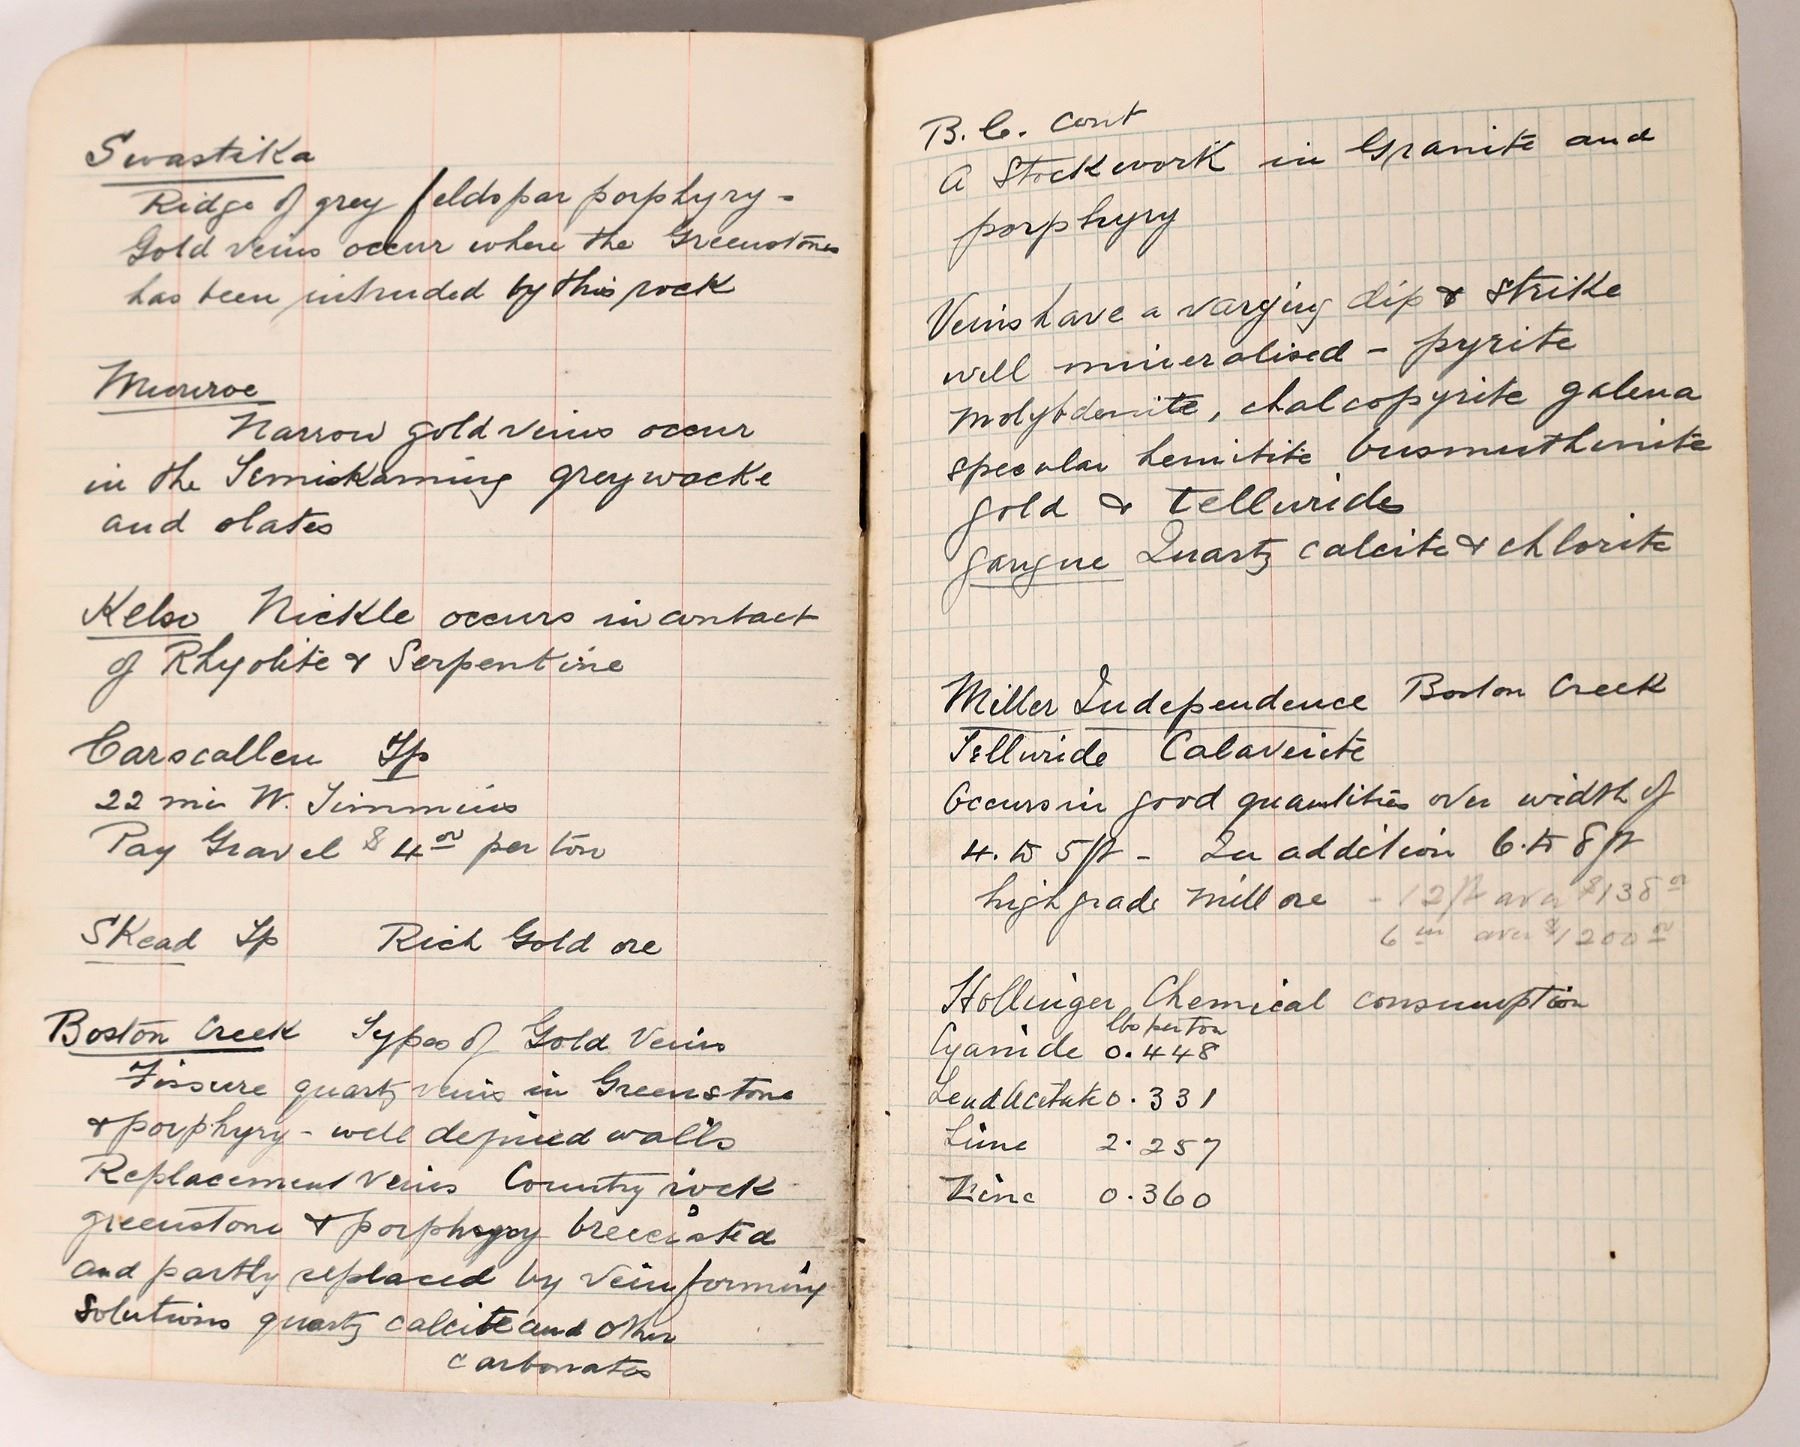 Swastika
Ridge of grey feldspar porphyry -
Gold veins occur where the Greenstones
has been intruded by this rock
Munroe
Narrow gold veins occur
in the Temiskaming greywacke
and slates
Kelso Nickle occurs in contact
of Rhyolite & Serpentine
Carscallen Tp
22 mi W. Timmins
Pay Gravel $4 00 per ton
Skead Tp Rich Gold ore
Boston Creek Types of Gold Veins
Fissure quartz veins in Greenstone
& porphyry - well defined walls
Replacement Veins Country rock
greenstone & porphyry brecciated
and partly replaced by vein forming
solutions quartz calcite and other
carbonates
B.C. cont
A Stockwork in Granite and
porphyry
Veins have a varying dip & strike
well mineralised - pyrite
molybdenite, chalcopyrite galena
specular hemitite busmuthinite
gold & tellurides
gangue Quartz calcite & chlorite
Miller Independence Boston Creek
Telluride Calaverite
Occurs in good quantities over width of
4. to 5 ft - In addition 6. to 8 ft
high grade mill ore - 12 ft aver $138 00
6 in aver $1200 00
Hollinger Chemical consumption
lbs per ton
Cyanide 0.448
Lead Acetate 0.331
Lime 2.257
Zinc 0.360